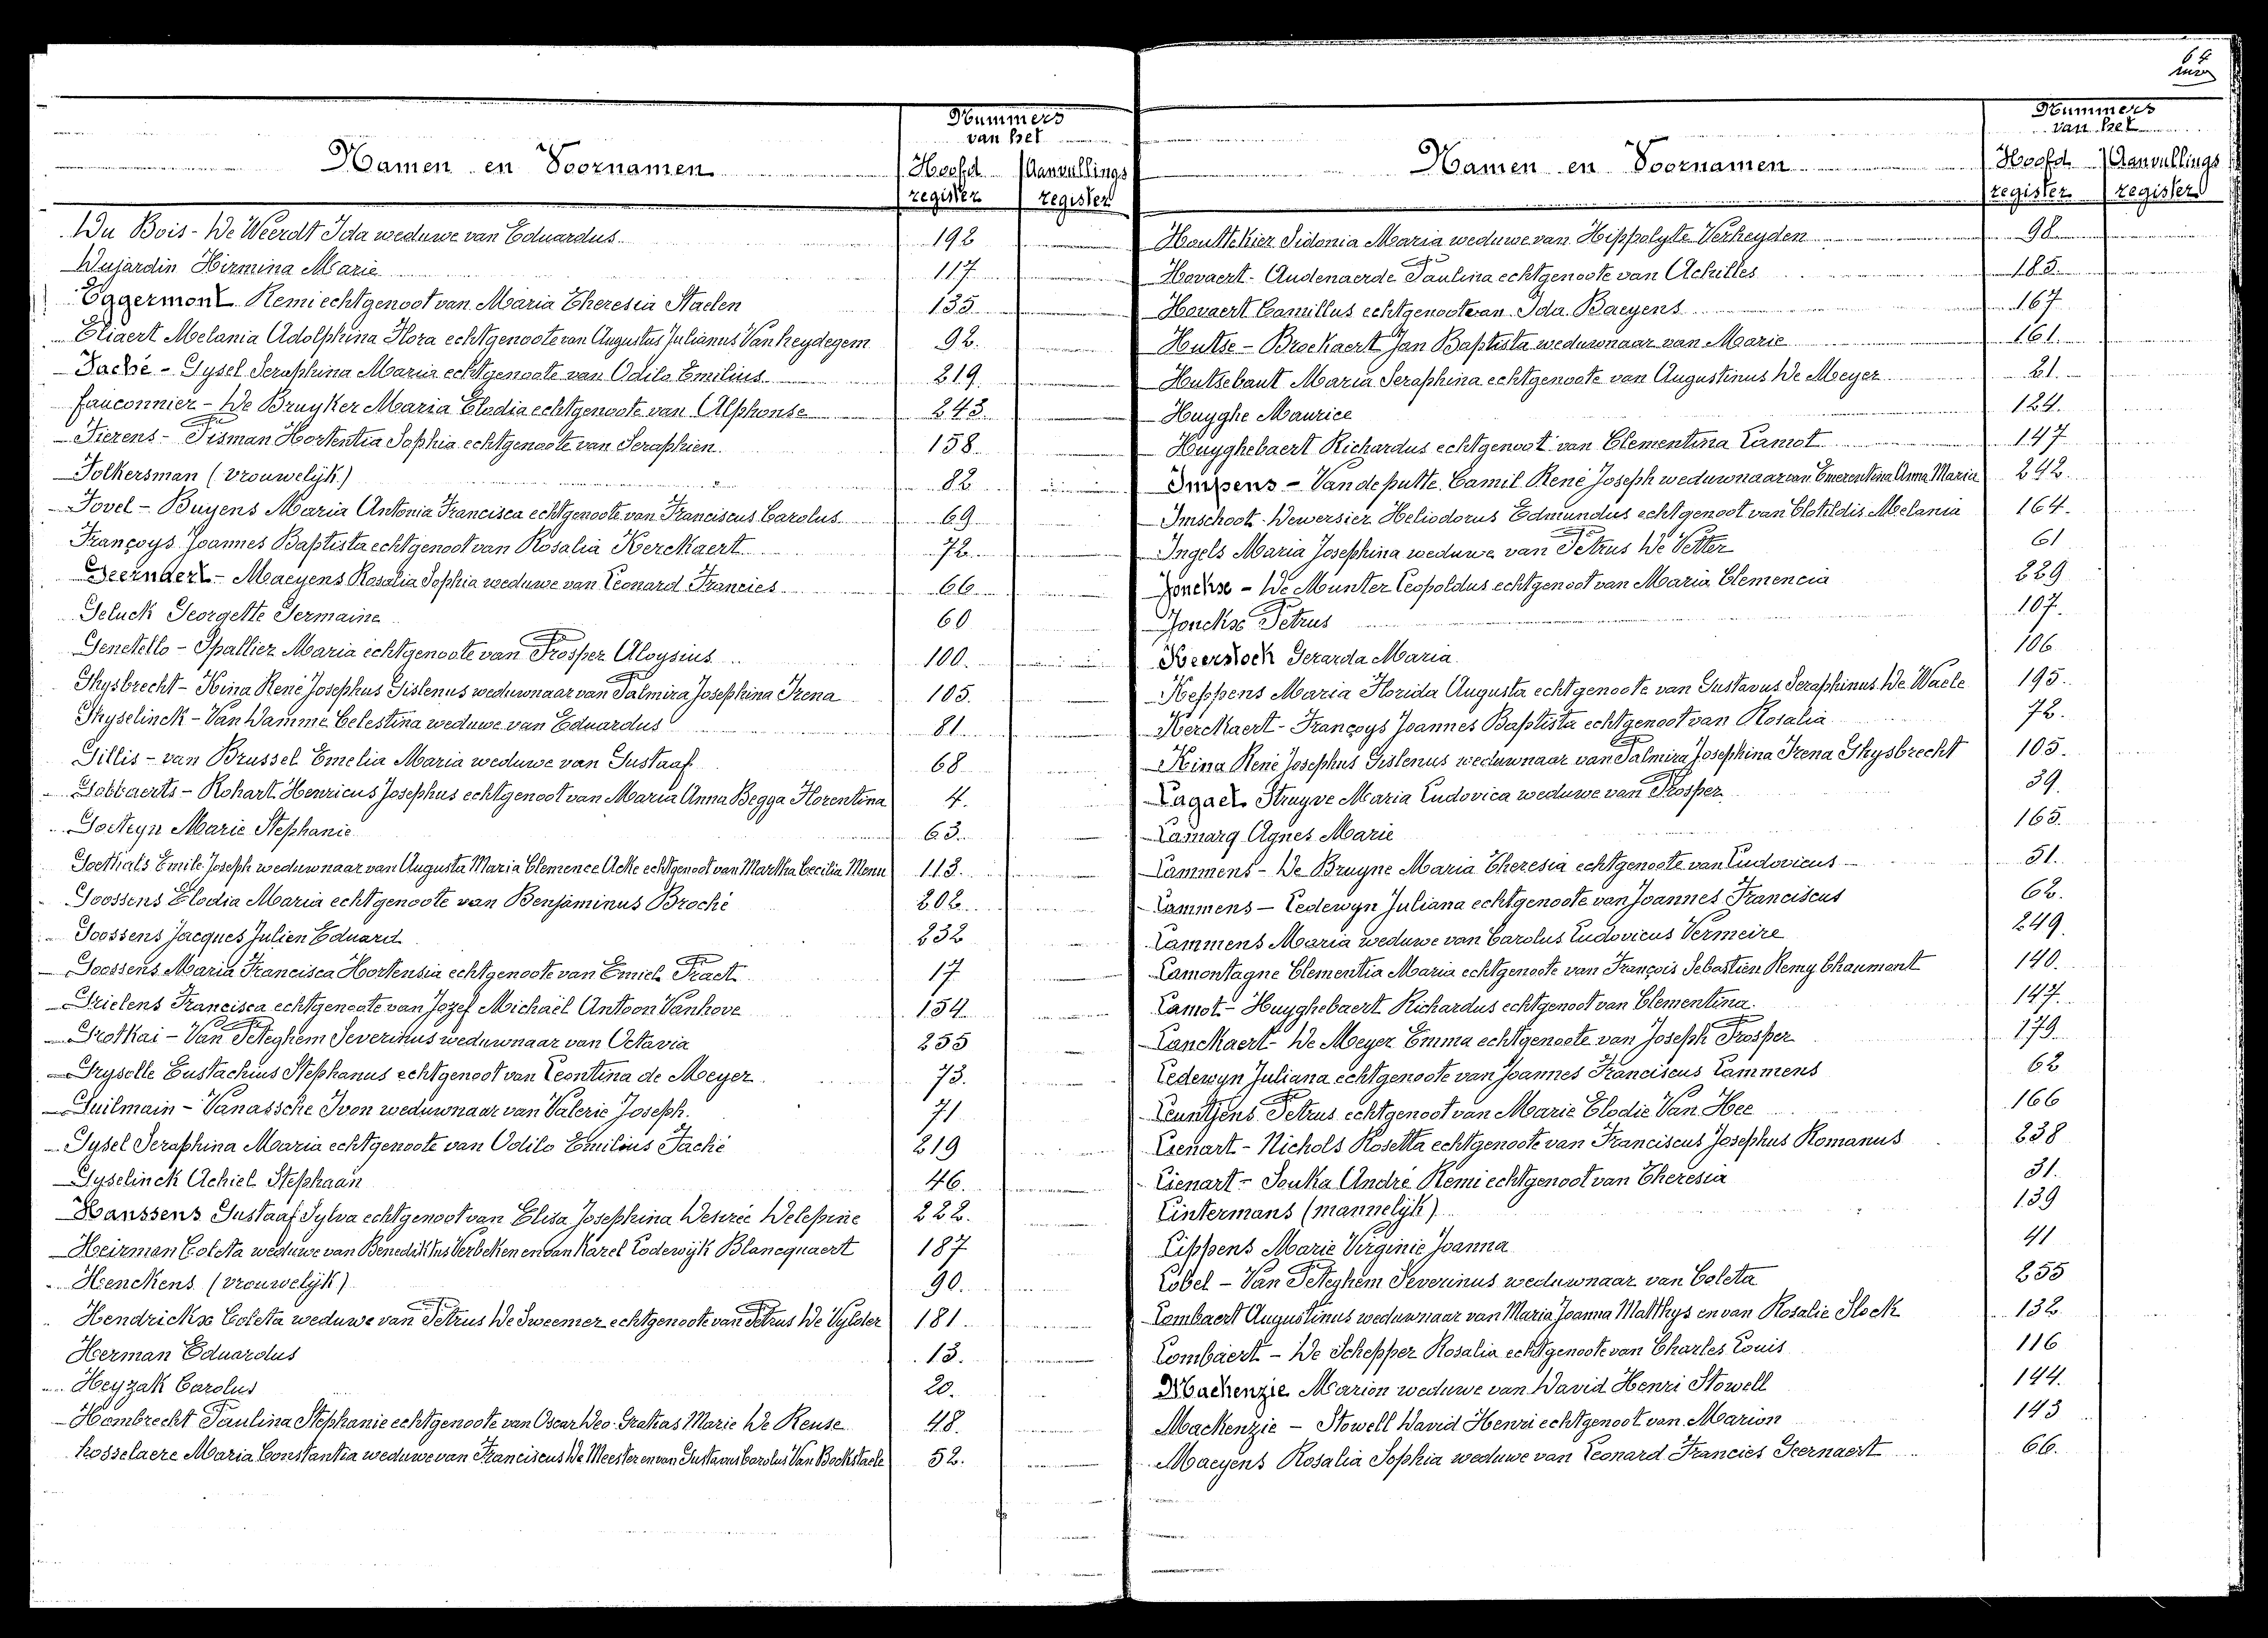 64
Nummers
van het
Namen en Voornamen
Hoofd register
Aanvullings register
Du Bois - De Weerdt Ida weduwe van Eduardus 192
Dujardin Hirmina Marie 117
Eggermont Remi echtgenoot van Maria Theresia Staelen 135
Eliaert Melania Adolphina Flora echtgenoote van Augustus Julianus Vanheydegem 92.
Faché - Gysel Seraphina Maria echtgenoote van Odilo Emilius 219
Fauconnier - De Bruyker Maria Elodia echtgenoote van Alphonse 243
Fierens - Tisman Hortentia Sophia echtgenoote van Seraphien 158
Folkersman (vrouwelijk) 82
Fovel - Buyens Maria Antonia Francisca echtgenoote van Franciscus Carolus 69
Françoys Joannes Baptista echtgenoot van Rosalia Kerckaert 72.
Geernaert - Maeyens Rosalia Sophia weduwe van Leonard Francies 66
Geluck Georgette Germaine 60
Genetello - Spallier Maria echtgenoote van Prosper Aloysius 100.
Ghysbrecht - Hina René Josephus Gislenus weduwnaar van Palmira Josephina Irena 105.
Ghyselinck - Van Damme Celestina weduwe van Eduardus 81
Gillis - van Brussel Emelia Maria weduwe van Gustaaf 68
Gobbaerts - Rohart Henricus Josephus echtgenoot van Maria Anna Begga Florentina 4.
Goeteyn Marie Stephanie 63.
Goethals Emile Joseph weduwnaar van Augusta Maria Clemence Acke echtgenoot van Martha Cecilia Menu 113.
Goossens Elodia Maria echtgenoote van Benjaminus Broché 202
Goossens Jacques Julien Eduard 232
Goossens Maria Francisca Hortensia echtgenoote van Emiel Praet 17
Grielens Francisca echtgenoote van Jozef Michaël Antoon Vanhove 154
Grotkai - Van Peteghem Severinus weduwnaar van Octavia 255
Gryselle Eustachius Stephanus echtgenoot van Leontina de Meyer 73.
Guilmain - Vanassche Ivon weduwnaar van Valerie Joseph. 71
Gysel Seraphina Maria echtgenoote van Odilo Emilius Faché 219
Gyselinck Achiel Stephaan 46.
Hanssens Gustaaf Sylva echtgenoot van Elisa Josephina Desirée Delepine 222.
Heirman Coleta weduwe van Benediktus Verbeken en van Karel Lodewijk Blancquaert 187
Henckens (vrouwelijk) 90.
Hendrickx Coleta weduwe van Petrus De Sweemer echtgenoote van Petrus De Vylder 181
Herman Eduardus 13.
Heyzak Carolus 20.
Hombrecht Paulina Stephanie echtgenoote van Oscar Deo-Gratias Marie De Reuse 48.
Hosselaere Maria Constantia weduwe van Franciscus De Meester en van Gustavus Carolus Van Bockstaele 52.
Nummers
van het
Namen en Voornamen
Hoofd register
Aanvullings register
Houttekier Sidonia Maria weduwe van Hippolyte Verheyden 98
Hovaert - Audenaerde Paulina echtgenoote van Achilles 185
Hovaert Camillus echtgenoot van Ida Baeyens 167
Hutse - Brockaert Jan Baptista weduwnaar van Marie 161
Hutsebaut Maria Seraphina echtgenoote van Augustinus De Meyer 21.
Huyghe Maurice 124.
Huyghebaert Richardus echtgenoot van Clementina Lamot 147
Impens - Vandeputte Camil René Joseph weduwnaar van Emerentina Anna Maria 242.
Imschoot - Dewersier Heliodorus Edmundus echtgenoot van Clotildis Melania 164.
Ingels Maria Josephina weduwe van Petrus De Vetter 61
Jonckx - De Munter Leopoldus echtgenoot van Maria Clemencia 229
Jonckx Petrus 107.
Keerstock Gerarda Maria 106
Keppens Maria Florida Augusta echtgenoote van Gustavus Seraphinus De Waele 195.
Kerckaert - Françoys Joannes Baptista echtgenoot van Rosalia 72.
Kina René Josephus Gislenus weduwnaar van Palmira Josephina Irena Ghysbrecht 105.
Lagaet Struyve Maria Ludovica weduwe van Prosper 39.
Lamarq Agnes Marie 165.
Lammens - De Bruyne Maria Theresia echtgenoote van Ludovicus 51.
Lammens - Ledewyn Juliana echtgenoote van Joannes Franciscus 62.
Lammens Maria weduwe van Carolus Ludovicus Vermeire 249.
Lamontagne Clementia Maria echtgenoote van François Sebastien Remy Chaumont 140.
Lamot - Huyghebaert Richardus echtgenoot van Clementina. 147.
Lanckaert - De Meyer Emma echtgenoote van Joseph Prosper 179
Ledewyn Juliana echtgenoote van Joannes Franciscus Lammens 62
Leuntjens Petrus echtgenoot van Marie Elodie Van Hee 166
Lienart - Nichols Rosetta echtgenoote van Franciscus Josephus Romanus 238
Lienart - Souka André Remi echtgenoot van Theresia 31.
Lintermans (mannelijk) 139
Lippens Marie Virginie Joanna 41
Lobel - Van Peteghem Severinus weduwnaar van Coleta 255
Lombaert Augustinus weduwnaar van Maria Joanna Matthys en van Rosalie Slock 132
Lombaert - De Schepper Rosalia echtgenoote van Charles Louis 116
Mackenzie Marion weduwe van David Henri Stowell 144.
Mackenzie - Stowell David Henri echtgenoot van Marion 143
Maeyens Rosalia Sophia weduwe van Leonard Francies Geernaert 66.